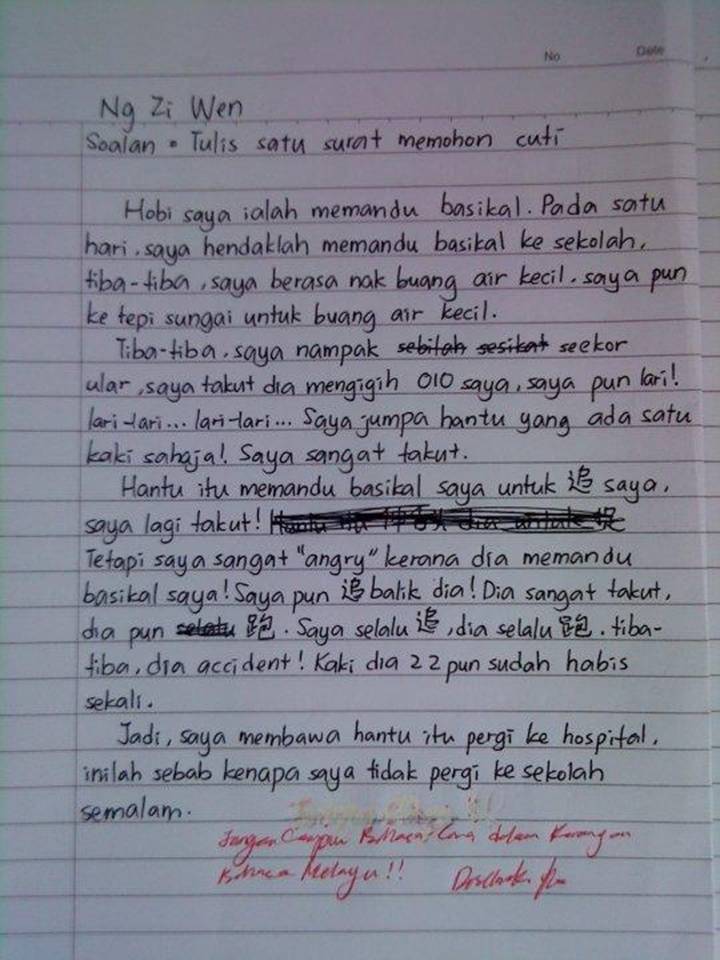 No Date
Ng Zi Wen
Soalan = Tulis satu surat memohon cuti
Hobi saya ialah memandu basikal. Pada satu
hari, saya hendaklah memandu basikal ke sekolah,
tiba-tiba, saya berasa nak buang air kecil. saya pun
ke tepi sungai untuk buang air kecil.
Tiba-tiba, saya nampak sebilah sesikat seekor
ular, saya takut dia mengigih 010 saya, saya pun lari!
lari-lari... lari-lari... Saya jumpa hantu yang ada satu
kaki sahaja! Saya sangat takut.
Hantu itu memandu basikal saya untuk 追 saya,
saya lagi takut!
Tetapi saya sangat "angry" kerana dia memandu
basikal saya! Saya pun 追 balik dia! Dia sangat takut,
dia pun selalu 跑. Saya selalu 追, dia selalu 跑. tiba-
tiba, dia accident! Kaki dia 22 pun sudah habis
sekali.
Jadi, saya membawa hantu itu pergi ke hospital,
inilah sebab kenapa saya tidak pergi ke sekolah
semalam.
Jangan Campur Bahasa Cina dalam Karangan
Bahasa Melayu!!